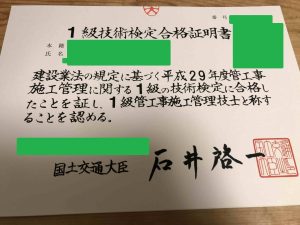 番号
1級技術検定合格証明書
本籍
氏名
建設業法の規定に基づく平成29年度管工事
施工管理に関する1級の技術検定に合格し
たことを証し、1級管工事施工管理技士と称す
ることを認める。
国土交通大臣 石井啓一